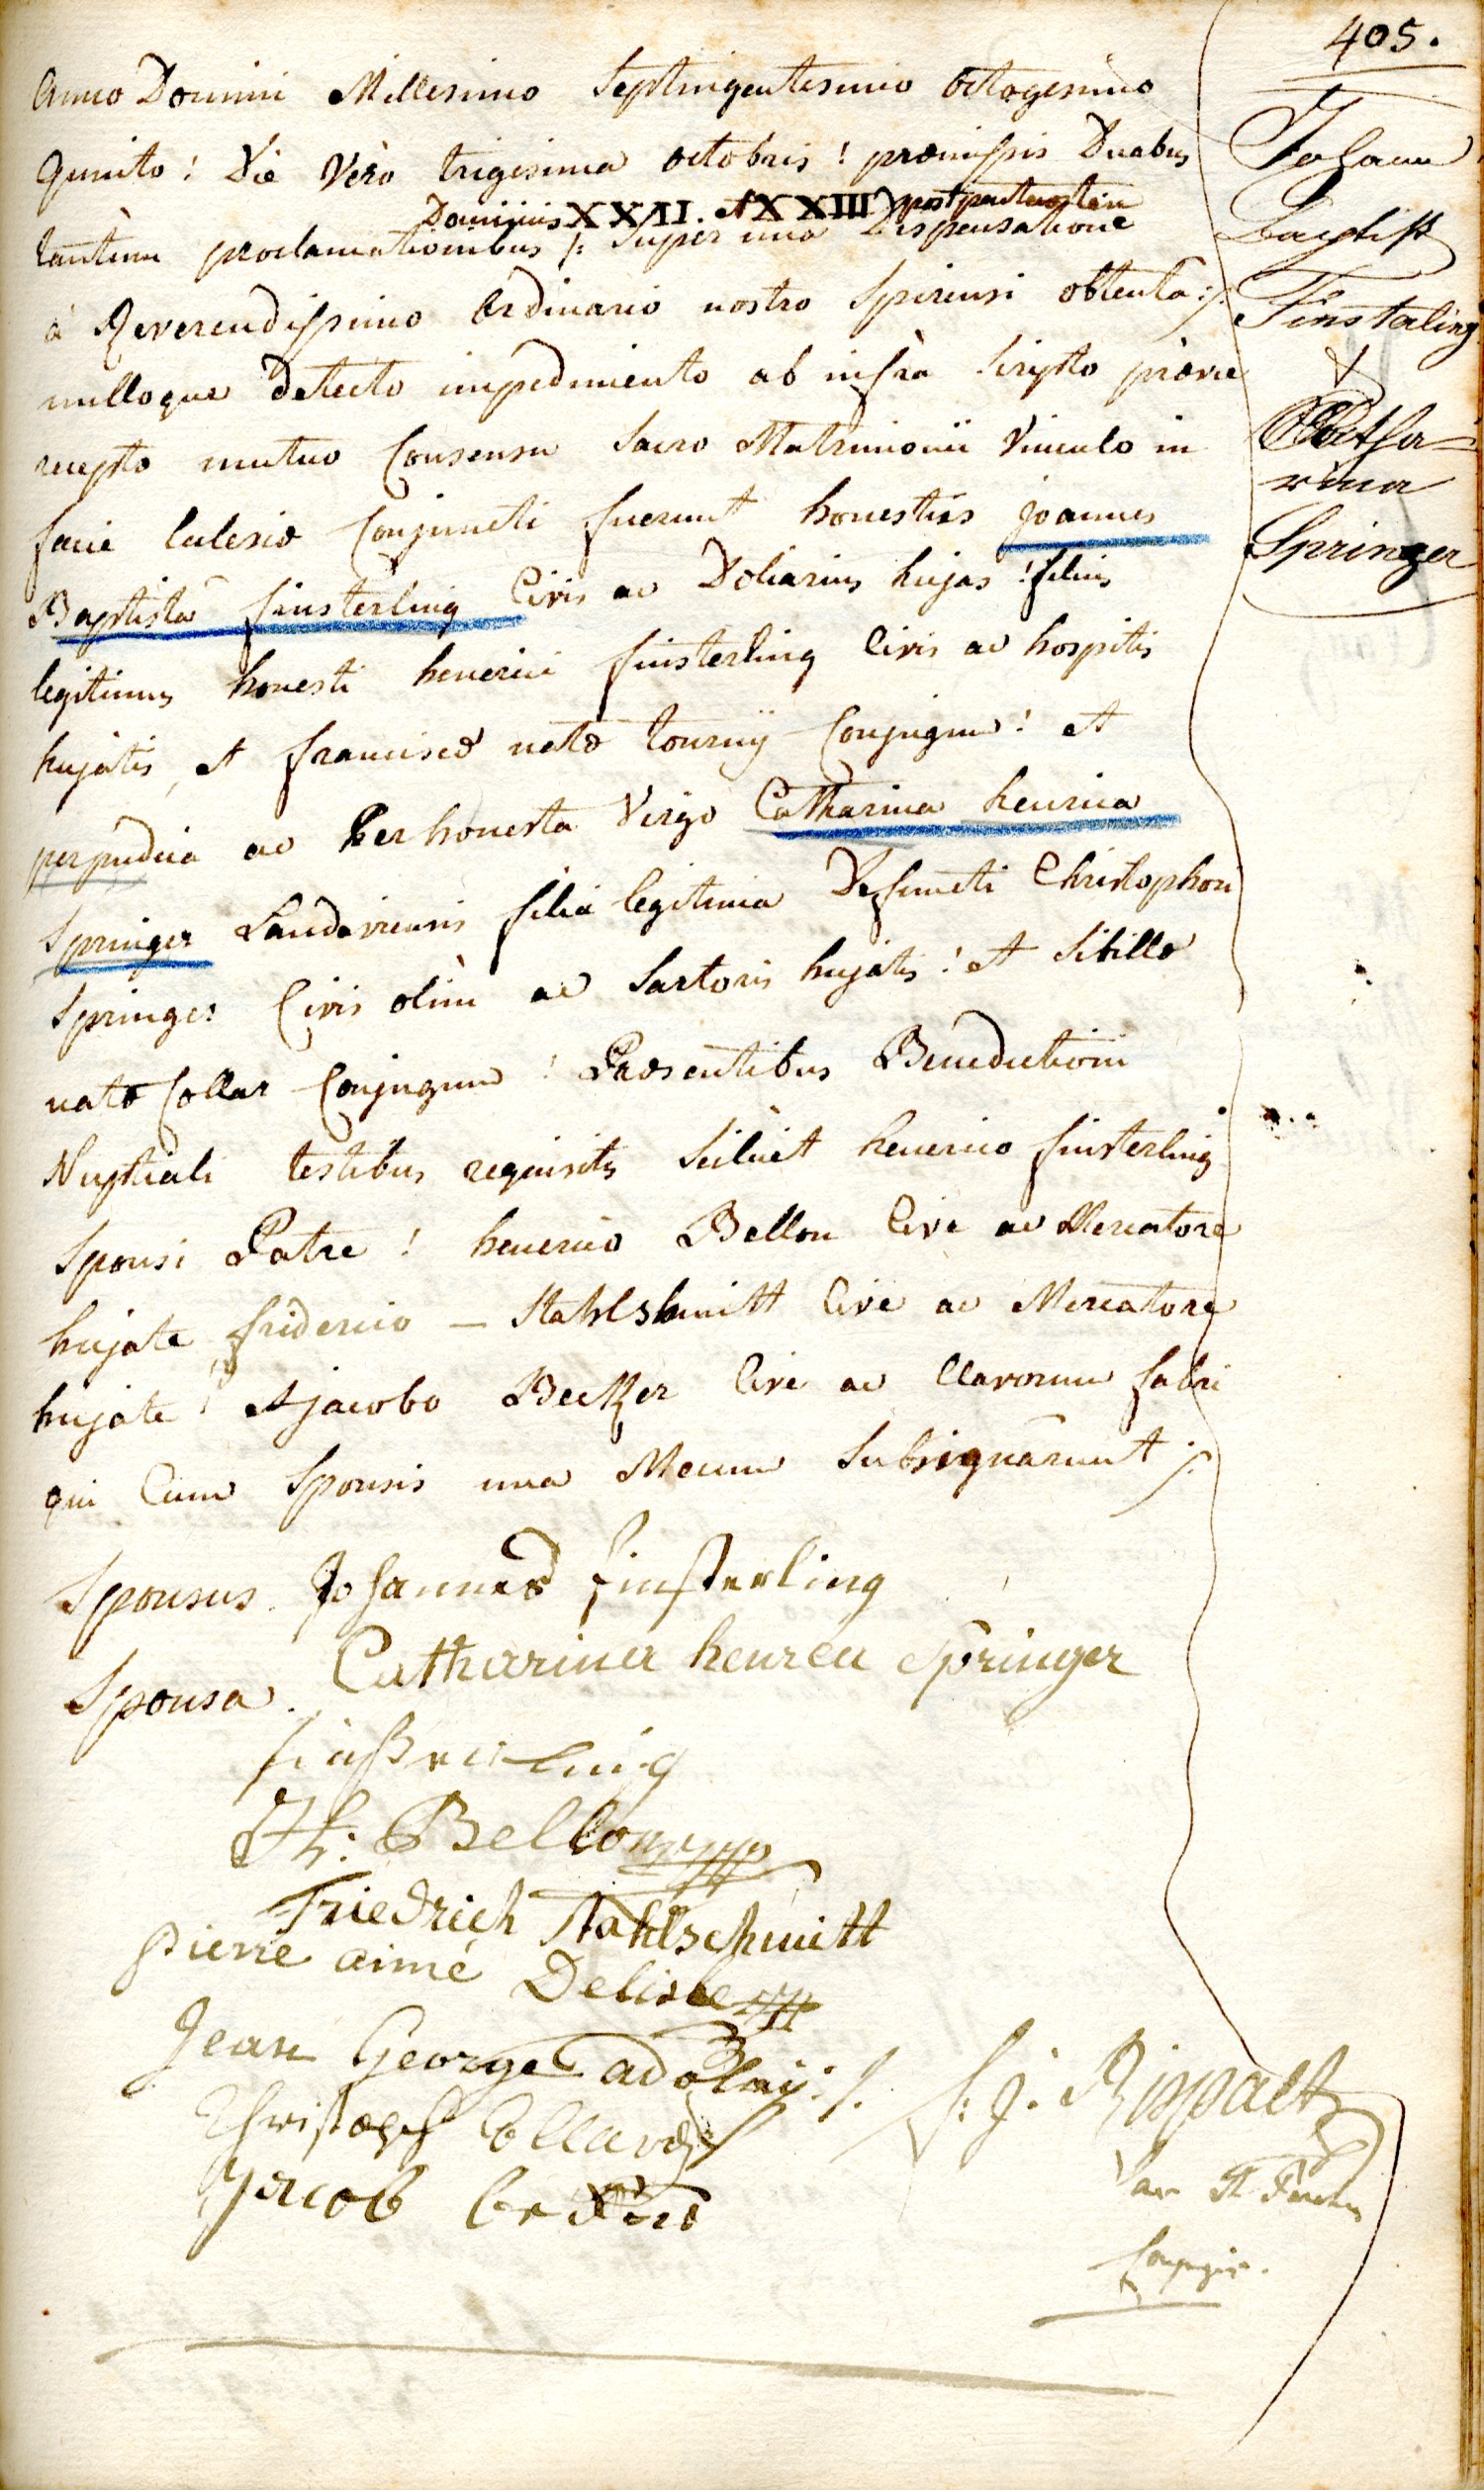 405.
Anno Domini Millesimo Septingentesimo Octogesimo
Quinto! Die Vero trigesima octobris! præmissis Duabus
Dominicis XXII. et XXIII post pentecosten
tantum proclamationibus /: Super una Dispensatione
à Reverendissimo Ordinario nostro Spirensi obtenta :/
nulloque detecto impedimento ab infra Scripto prævie
recepto mutuo Consensu Sacro Matrimonii Vinculo in
facie Eclesiæ Conjuncti fuerunt honestus joannes
Baptista finsterling Civis ac Doliarius hujas! filius
legitimus honesti henerici finsterling Civis ac hospitis
hujatis, et franciscæ natæ tourny Conjugum! et
perpudica ac Perhonesta Virgo Catharina henrica
Springer Landaviensis filia legitima Defuncti Christophori
Springer Civis olim ac Sartoris hujatis! et Sibillæ
natæ Collar Conjugum! Præsentibus Benedictioni
Nuptiali testibus requisitis Scilicet henerico finsterling
Sponsi Patre! henerico Bellon Cive ac Mercatore
hujate friderico — Stahlshmitt Cive ac Mercatore
hujate! et jacobo Becker Cive ac Clavorum fabri
qui Cum Sponsis una Mecum Subsignarunt :/
Sponsus. Johannes Finsterling
Sponsa. Catharina henrica Springer
finsterling
H: Bellon
Friedrich Stahlschmitt
pierre aimé Delisle
Jean George adolay :/.
Christoph Collard
Jacob
f: j: Rispalt
Johann
Baptist
Finsterling
&
Catha=
rina
Springer